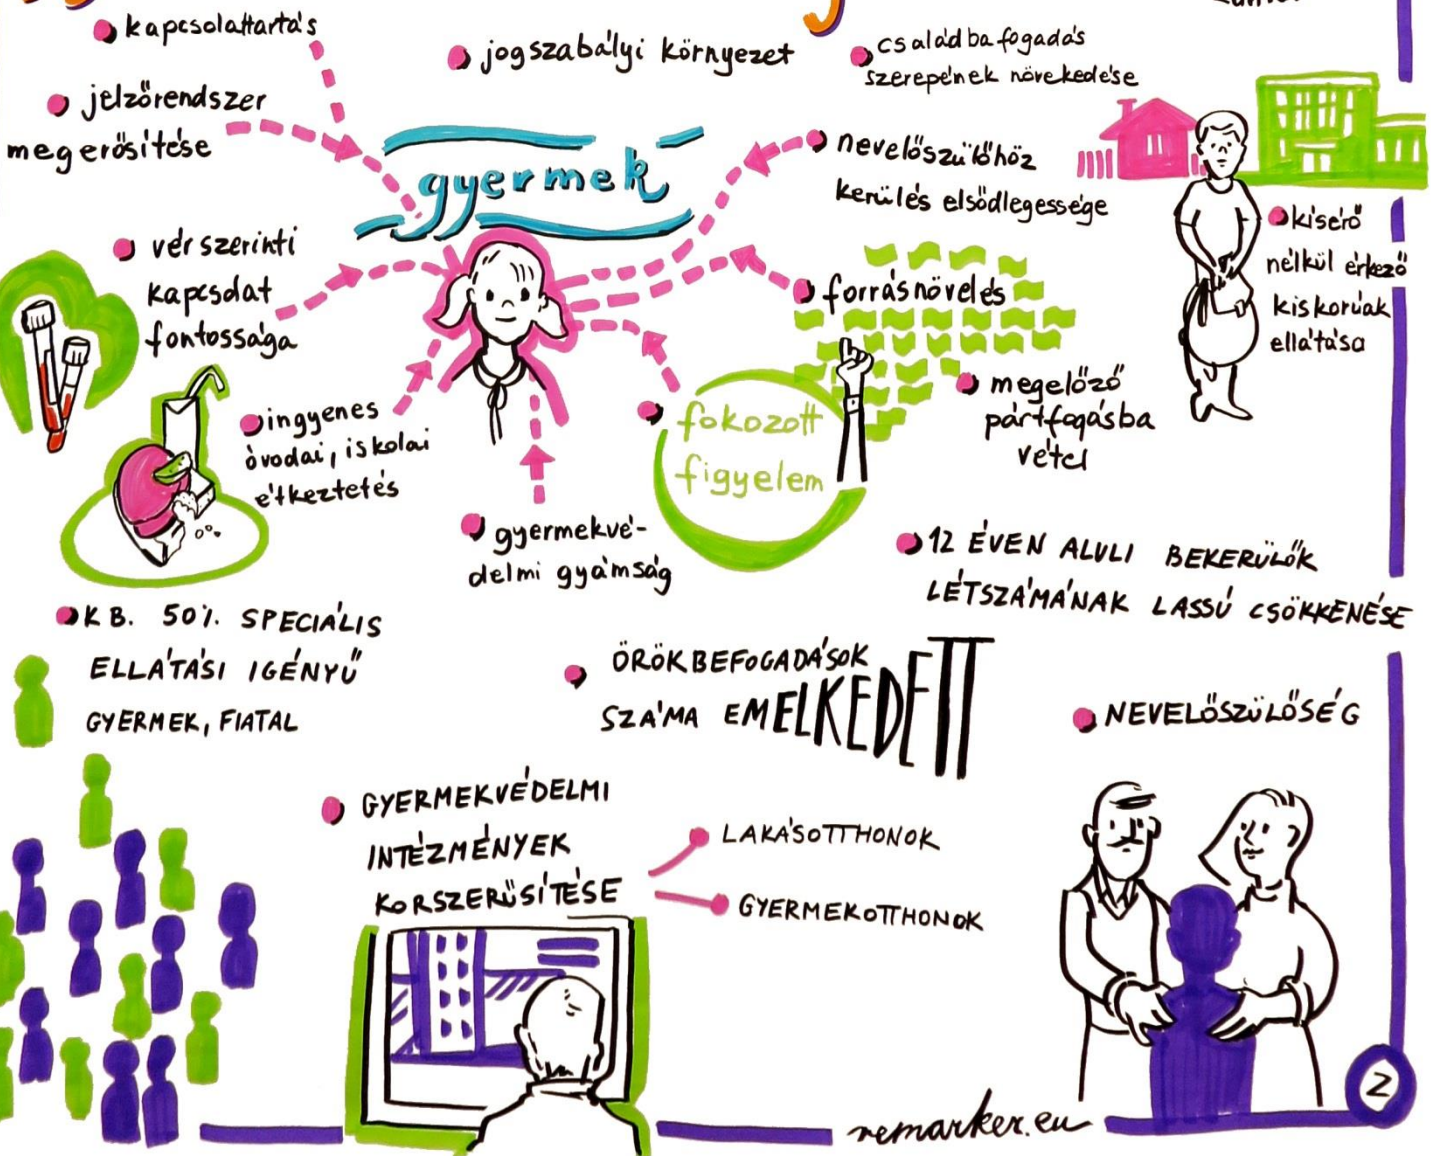 kapcsolattartás
jelzőrendszer
megerősítése
jogszabályi környezet
családbafogadás
szerepének növekedése
gyermek
nevelőszülőhöz
kerülés elsődlegessége
kísérő
nélkül érkező
kiskorúak
ellátása
vér szerinti
kapcsolat
fontossága
forrásnövelés
megelőző
pártfogásba
vétel
ingyenes
óvodai, iskolai
étkeztetés
fokozott
figyelem
gyermekvé-
delmi gyámság
12 ÉVEN ALULI BEKERÜLŐK
LÉTSZÁMÁNAK LASSÚ CSÖKKENÉSE
KB. 50% SPECIÁLIS
ELLÁTÁSI IGÉNYŰ
GYERMEK, FIATAL
ÖRÖKBEFOGADÁSOK
SZÁMA EMELKEDETT
NEVELŐSZÜLŐSÉG
GYERMEKVÉDELMI
INTÉZMÉNYEK
KORSZERŰSÍTÉSE
LAKÁSOTTHONOK
GYERMEKOTTHONOK
remarker.eu
2